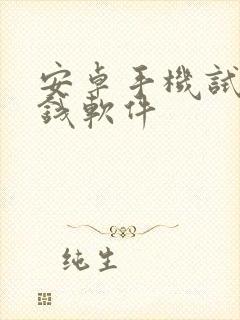 安卓手機試
錢軟件
純生